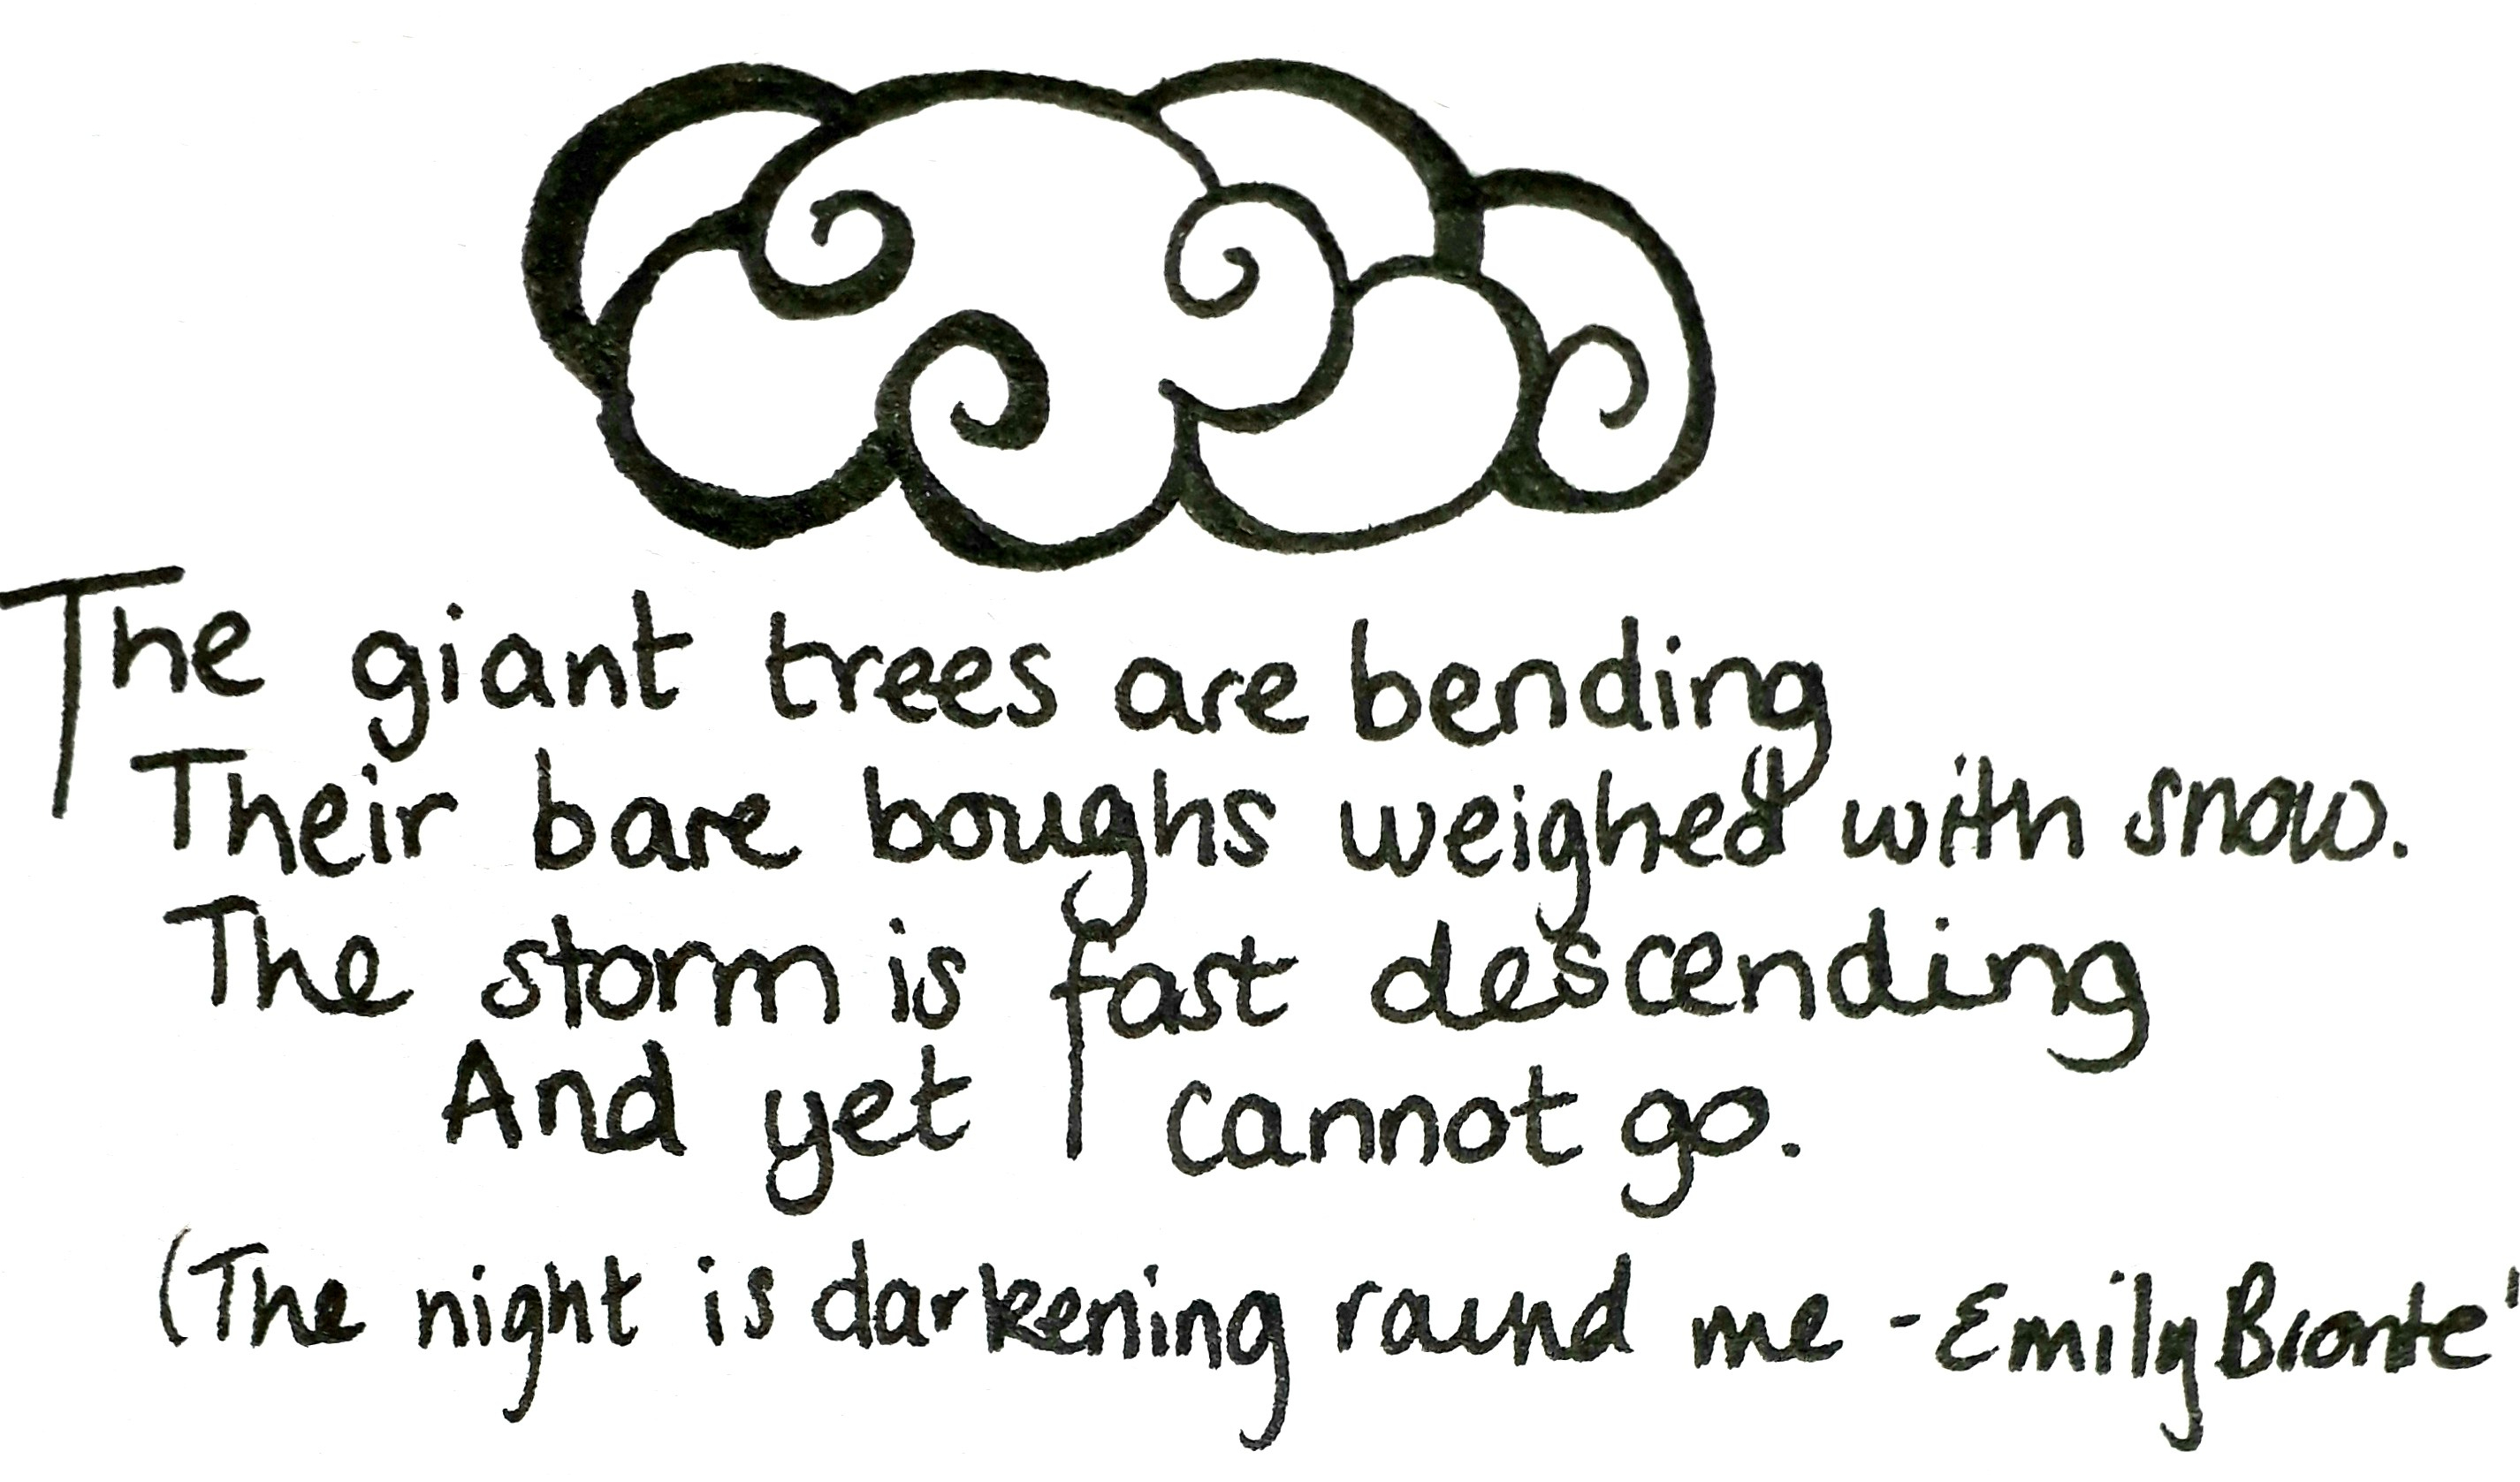 The giant trees are bending
Their bare boughs weighed with snow.
The storm is fast descending
And yet I cannot go.
(The night is darkening round me - Emily Bronte'